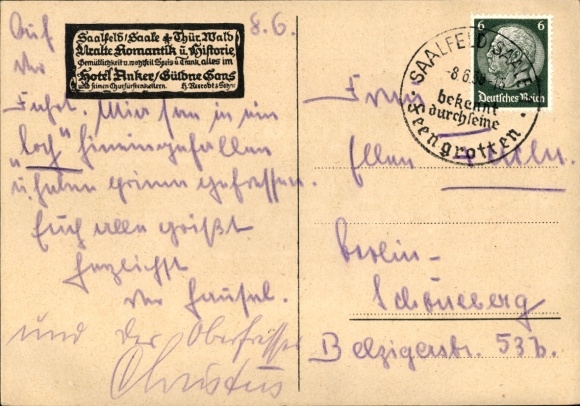 Auf
der
8.6.
Saalfeld/Saale & Thür. Wald
Uralte Romantik u. Historie,
Gemütlichkeit u. wohlfeil Speis u. Trank, alles im
Hotel Anker/Güldne Gans
und seinen Churfürstenkellern.
Fahrt. Mir san in ein
"Loch" hineingefallen
u. haben grimm gefressen.
Euch alle grüßt
herzlichst
der
und der Oberfresser
Christus
6 6
Deutsches Reich
SAALFELD (SAALE)
-8.6.
bekannt
durch seine
Feengrotten
Frau
Ellen
Berlin-
Schöneberg
Belzigerstr. 53b.